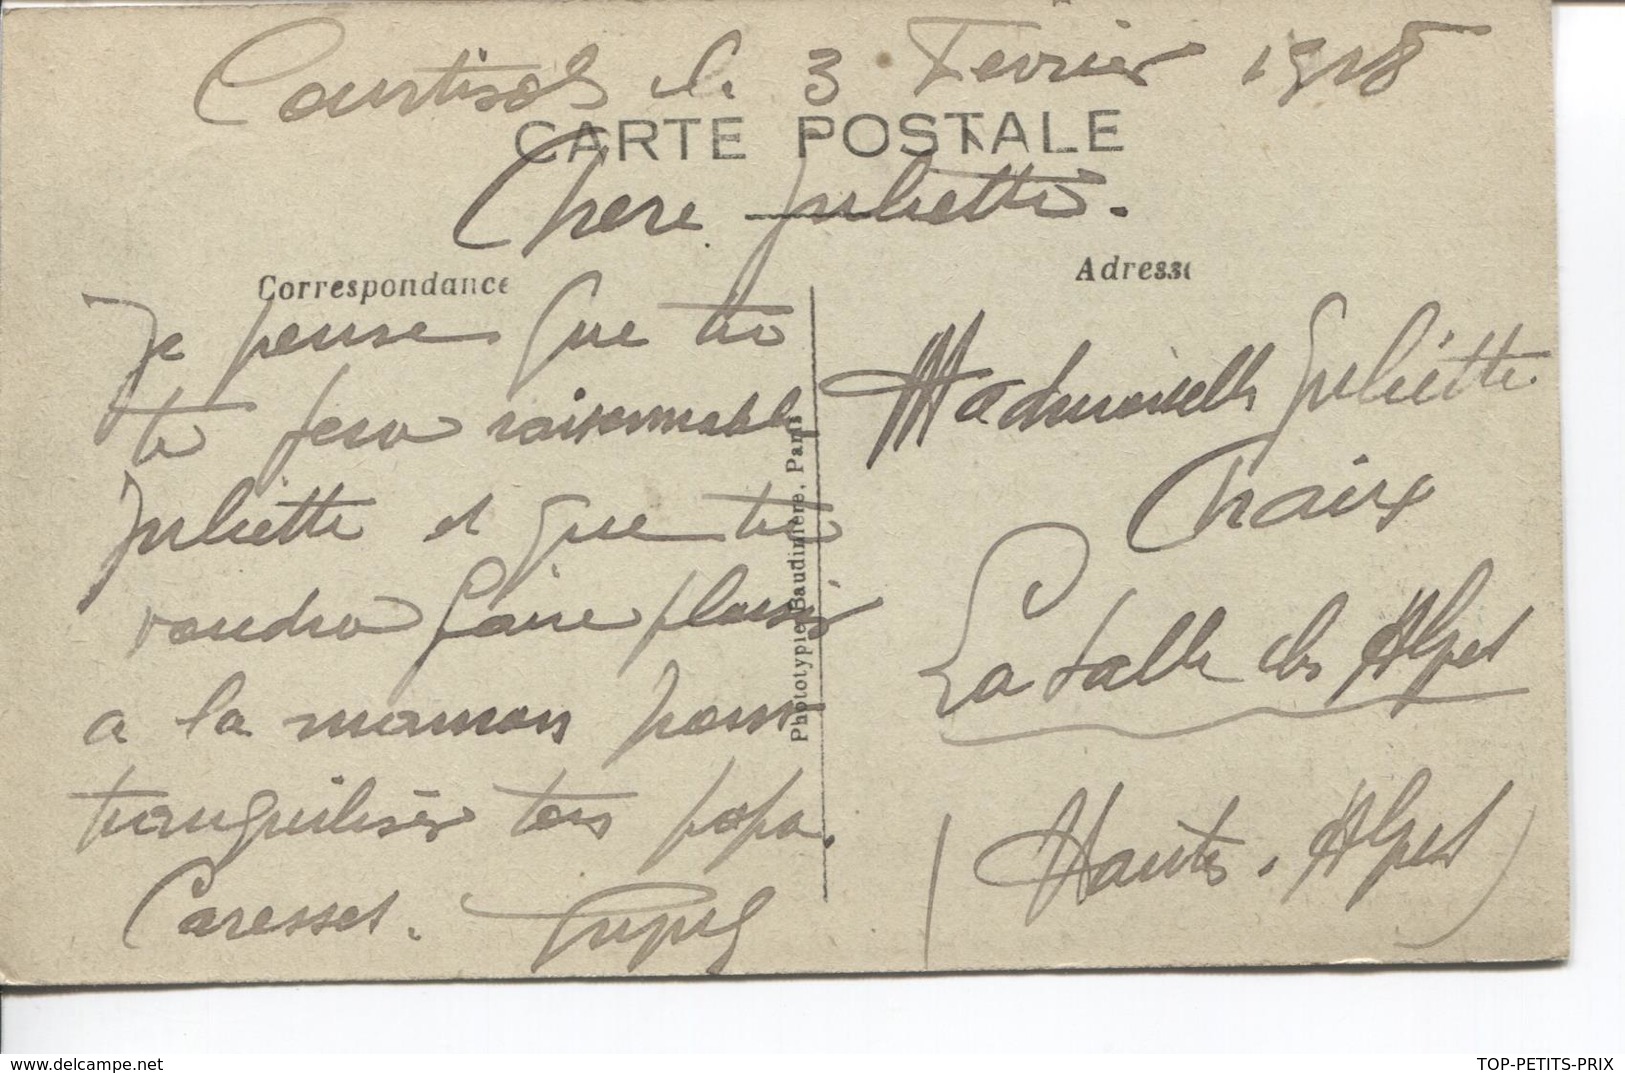 Courtisols le 3 Fevrier 1918
CARTE POSTALE
Chere Juliette.
Correspondance
Je pense que tu
te fera raisonnable
Juliette et que tu
voudra faire plaisir
a la maman pour
tranquiliser ton papa.
Caresses.
Phototypie Baudinière, Paris
Adresse
Mademoiselle Juliette
Chaix
La Salle les Alpes
(Hautes. Alpes)
delcampe.net
TOP-PETITS-PRIX